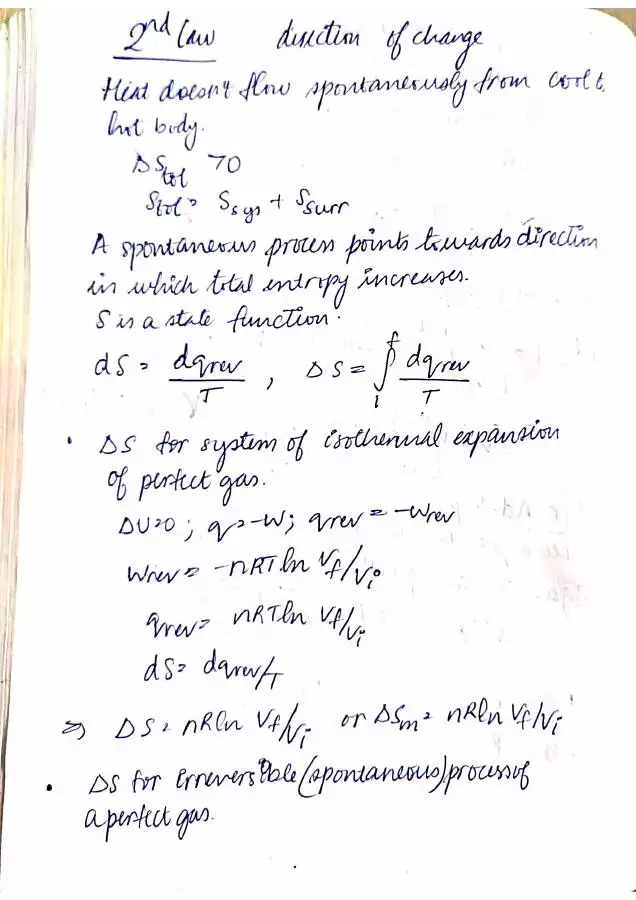 2nd law direction of change
Heat doesn't flow spontaneously from cool to
hot body.
ΔStot >0
Stot = Ssys + Ssurr
A spontaneous process points towards direction
in which total entropy increases.
S is a state function.
dS = dqrev/T , ΔS = ∮if dqrev/T
• ΔS for system of isothermal expansion
of perfect gas.
ΔU=0 ; q=-W; qrev = -Wrev
Wrev = -nRT ln Vf/Vi
qrev = nRT ln Vf/Vi
dS = dqrev/T
⇒ ΔS = nR ln Vf/Vi or ΔSm = nR ln Vf/Vi
• ΔS for irreversible (spontaneous) process of
a perfect gas.